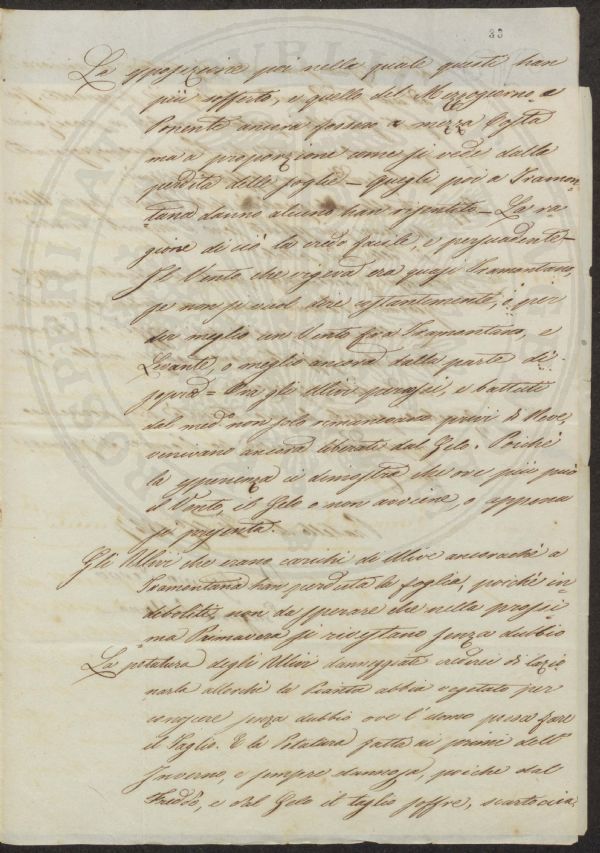 33
La esposizione poi nella quale questi han
più sofferto, è quella del Mezzogiorno e
Ponente ancora fosse a mezza Costa
ma a proporzione come si vede dalla
perdita delle foglie - Quegli poi a Tramon=
tana danno alcuno han risentito - La ra=
gione di ciò la credo facile, e persuadente -
Il Vento che regnava era quasi Tramontano,
se non si vuol dire costantemente, o per
dir meglio un Vento fra Tramontana, e
Levante, o meglio ancora dalla parte di
sopra = Ora gli Ulivi percossi, e battuti
dal med.º non solo rimanevano privi di Neve,
venivano ancora liberati dal Gelo. Poichè
la esperienza ci dimostra che ove più può
il Vento, il Gelo o non avviene, o appena
si presenta.
Gli Ulivi che erano carichi di Ulive ancorachè a
Tramontana han perduta la foglia, poichè in=
deboliti, non da sperare che nella prossi
ma Primavera si rivestano senza dubbio
La potatura degli Ulivi danneggiati crederei di
allorchè la Pianta abbia vegetato per
conoscere senza dubbio ove l'uomo possa fare
il Taglio. E la Potatura fatta ai primi dell'
Inverno, è sempre dannosa, poichè dal
Freddo, e dal Gelo il taglio soffre,
PROSPERITATI PUBLICAE